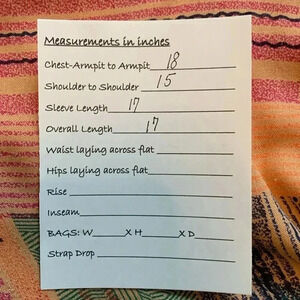 Measurements in inches
Chest-Armpit to Armpit 18
Shoulder to Shoulder 15
Sleeve Length 17
Overall Length 17
Waist laying across flat
Hips laying across flat
Rise
Inseam
BAGS: W______X H______X D______
Strap Drop